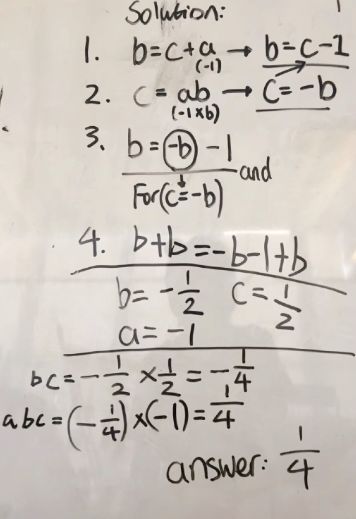 Solution:
1. b=c+a → b=c-1
(-1)
2. c=ab → c=-b
(-1×b)
3. b=(-b)-1
and
For(c=-b)
4. b+b=-b-1+b
b=-1/2 c=1/2
a=-1
bc=-1/2×1/2=-1/4
abc=(-1/4)×(-1)=1/4
answer: 1/4